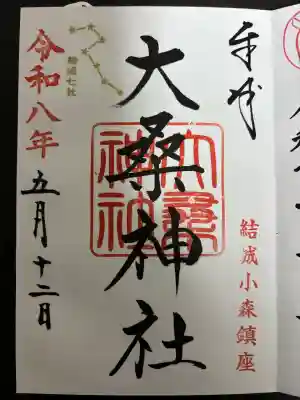 奉拝
結城小森鎮座
大桑神社
大桑神社
結城七社
令和八年
五月十二日